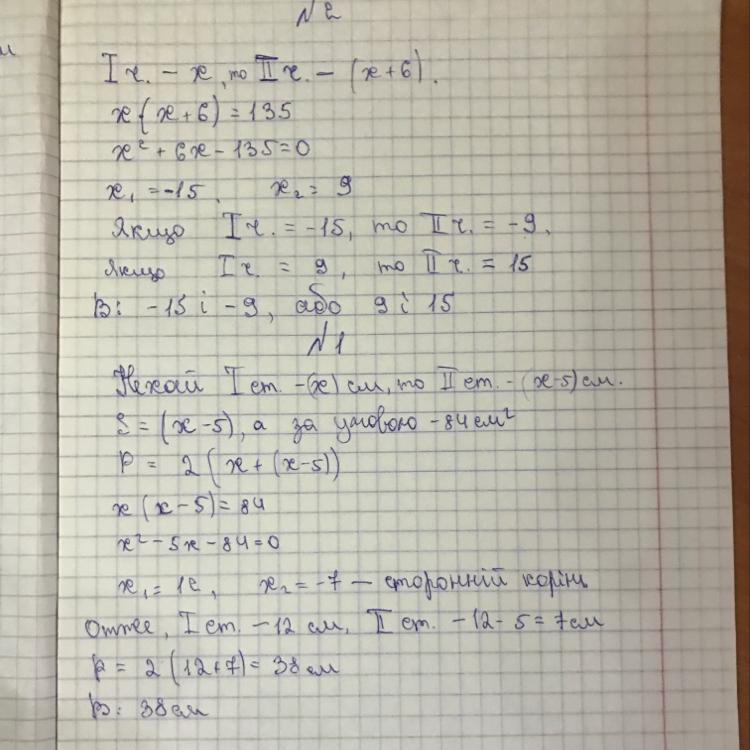 №2
I ч. – x, то II ч. – (x+6).
x(x+6) = 135
x² + 6x - 135 = 0
x₁ = -15. x₂ = 9
Якщо I ч. = -15, то II ч. = -9.
Якщо I ч. = 9, то II ч. = 15
В: -15 і -9, або 9 і 15
№1
Нехай I ст. -(x) см, то II ст. - (x-5) см.
S = (x-5), а за умовою - 84 см²
P = 2(x + (x-5))
x(x-5) = 84
x² - 5x - 84 = 0
x₁ = 12, x₂ = -7 — сторонній корінь
Отже, I ст. - 12 см, II ст. - 12 - 5 = 7 см
P = 2(12+7) = 38 см
В: 38 см